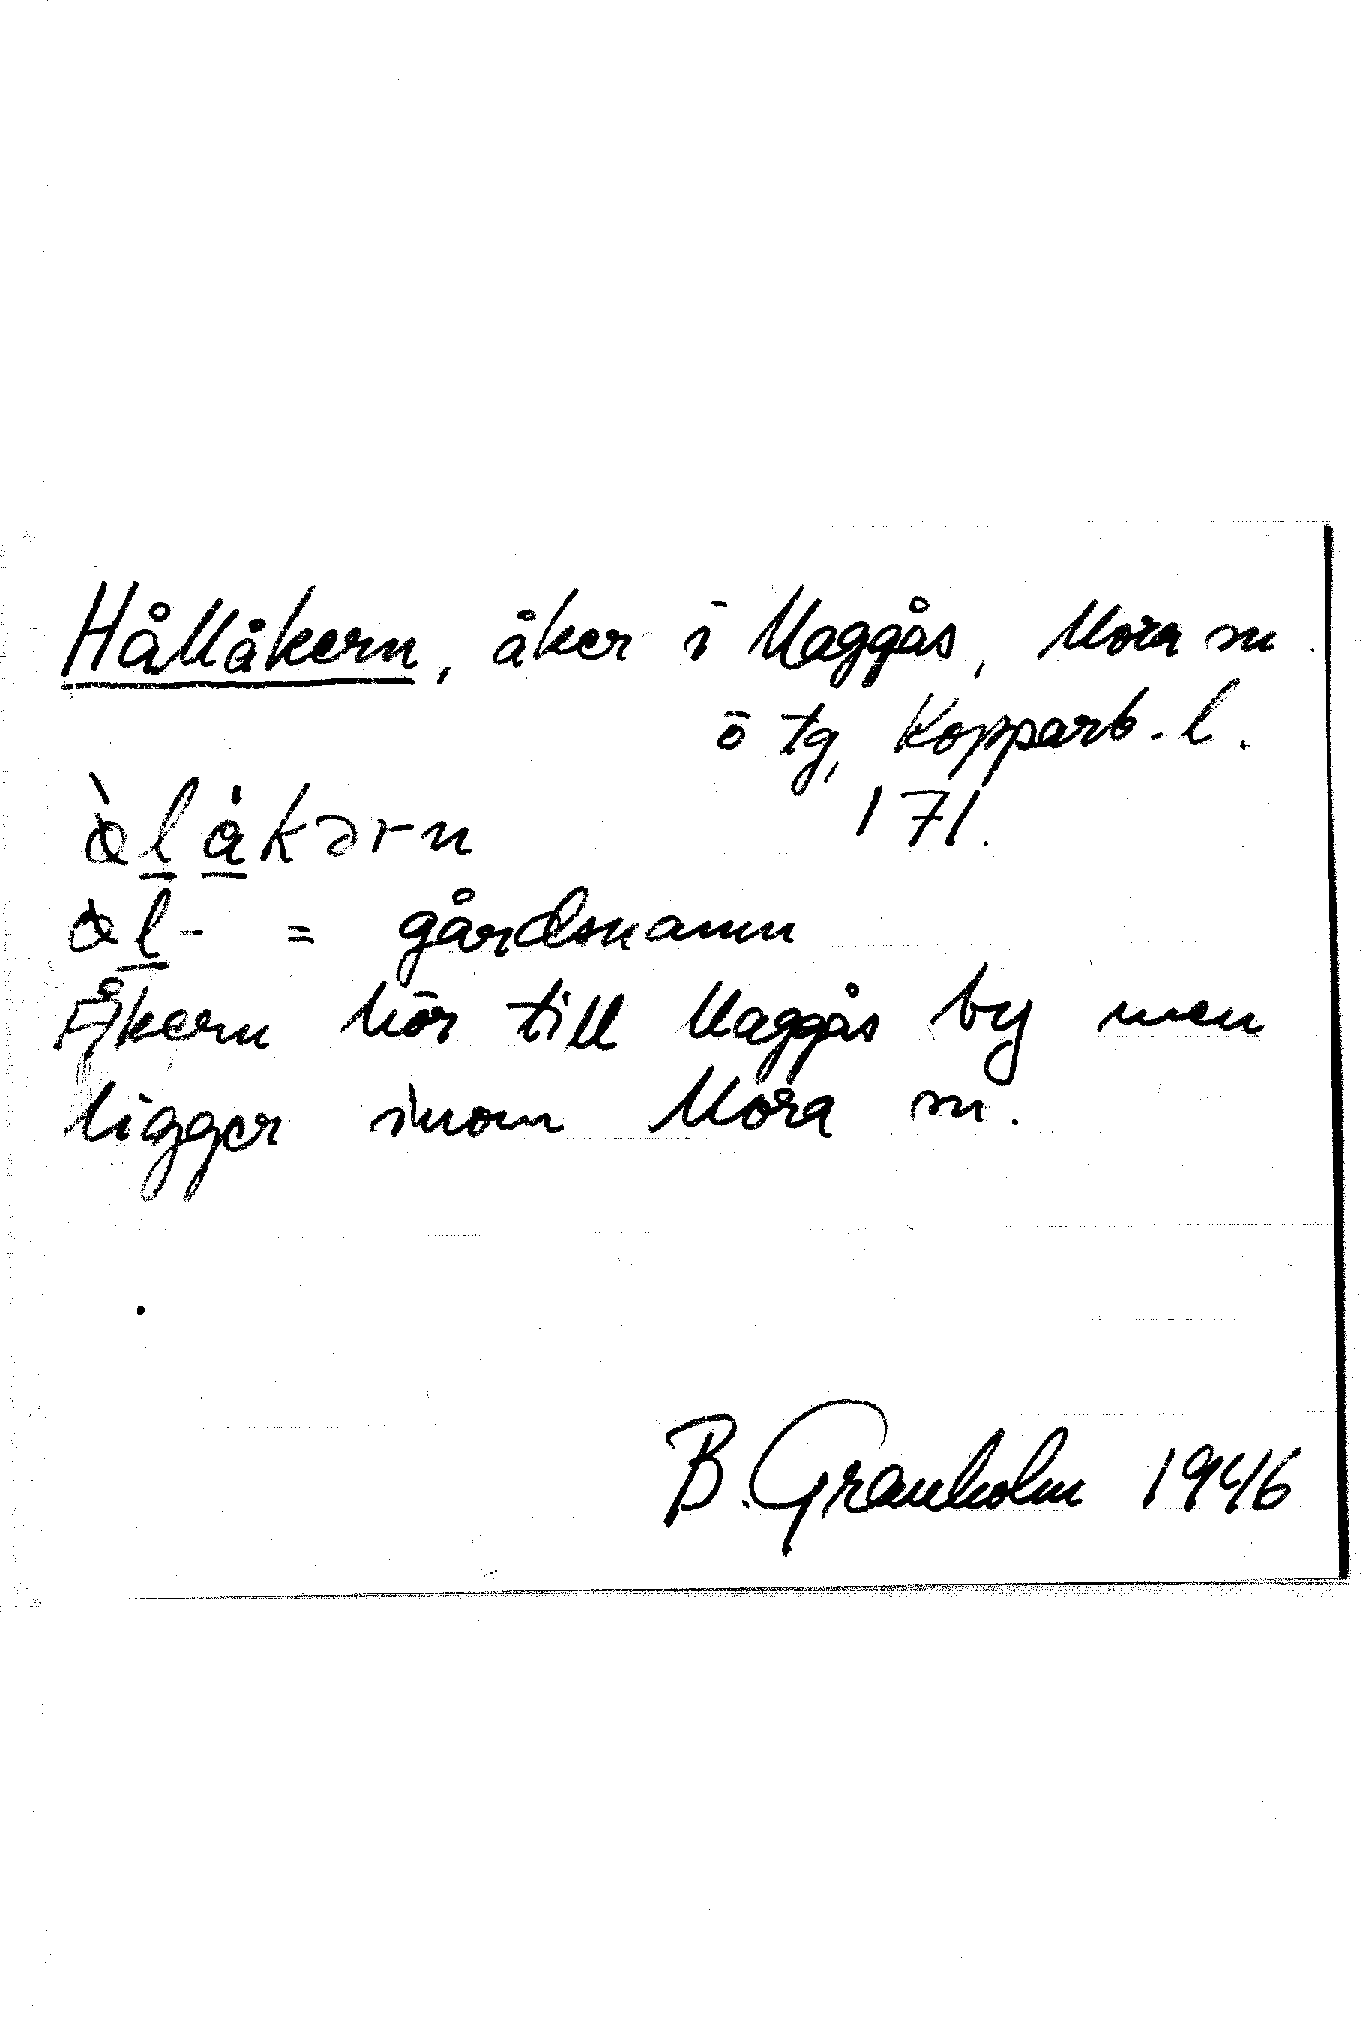 Hållåkern, åker i Maggås, Mora sn
ö tg, Kopparb. l.
171.
àlåkərn
àl- = gårdsnamn
Åkern hör till Maggås by men
ligger inom Mora sn.
B. Granholm 1946